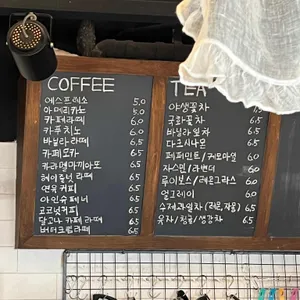 COFFEE
에스프레소 5.0
아메리카노 5.0
카페라떼 6.0
카푸치노 6.0
바닐라 라떼 6.5
카페모카 6.5
카라멜마끼아또 6.5
헤이즐넛 라떼 6.5
연유 커피 6.5
아인슈페너 6.5
코코넛커피 6.5
달고나 카페 라떼 6.5
버터크림라떼 6.5
TEA
야생꽃차
국화꽃차 6.5
바닐라 잎차 6.5
다크시나몬 6.5
페퍼민트/캐모마일 6.0
자스민/라벤더 6.0
루이보스/레몬그라스 6.0
얼그레이 6.0
수제과일차 6.5
유자/청귤/생강차 6.5